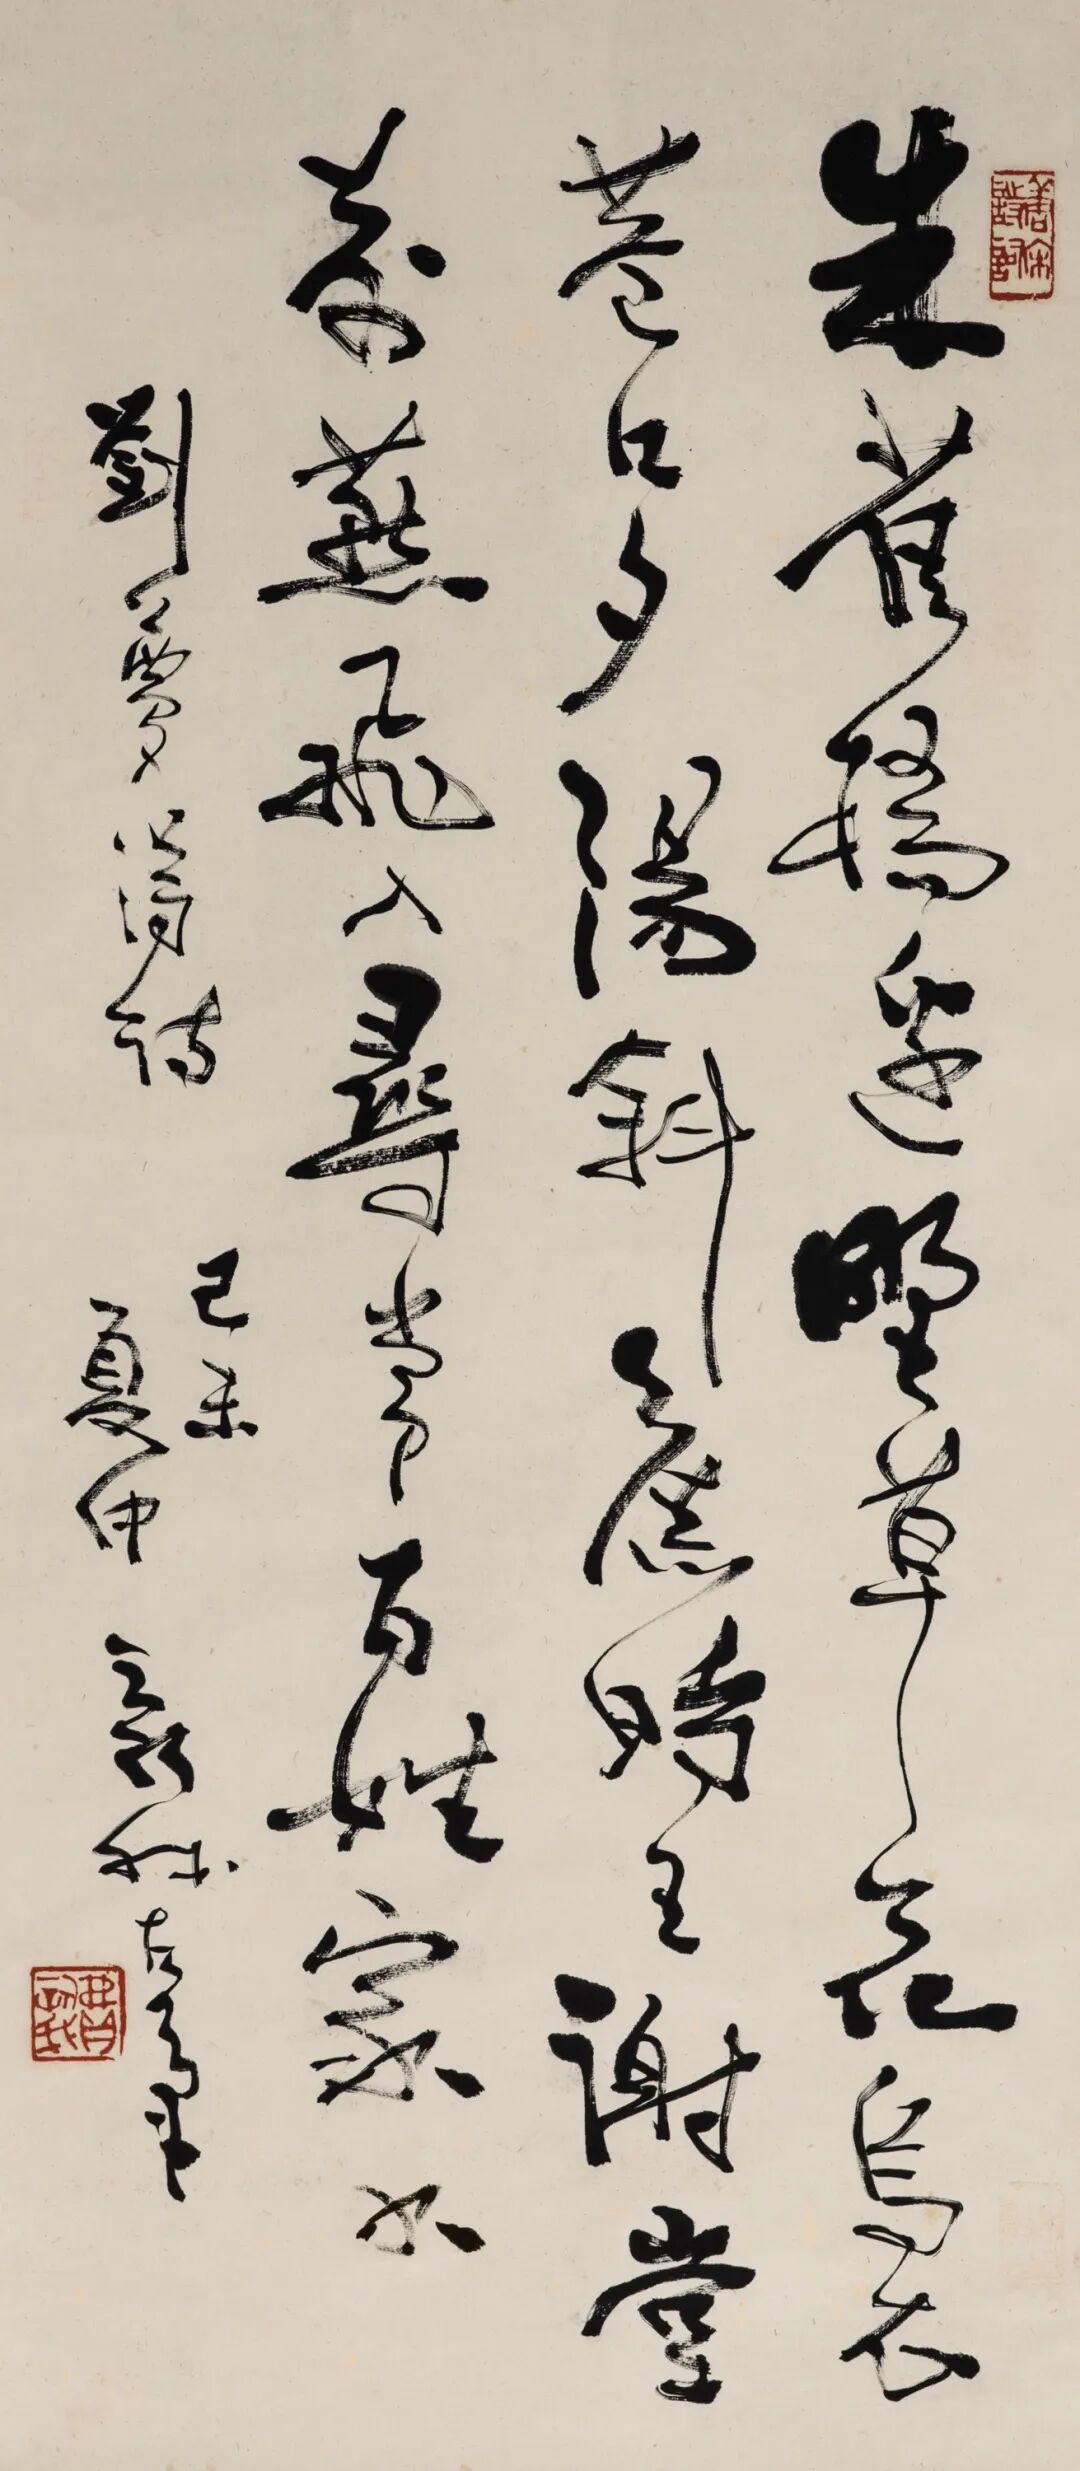 朱雀橋邊野草花烏衣
巷口夕陽斜舊時王謝堂
前燕飛入尋常百姓家
劉夢得詩
己未
夏仲 新我左筆